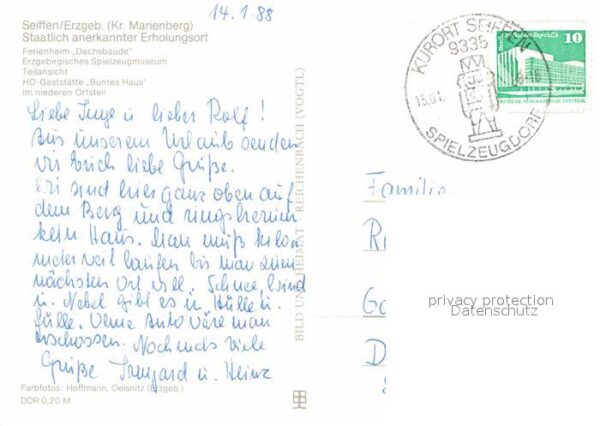 14.1.88
Seiffen/Erzgeb. (Kr. Marienberg)
Staatlich anerkannter Erholungsort
Ferienheim „Dachsbaude"
Erzgebirgisches Spielzeugmuseum
Teilansicht
HO-Gaststätte „Buntes Haus"
Im niederen Ortsteil
Liebe Inge u lieber Rolf!
Aus unserem Urlaub senden
wir Euch liebe Grüße.
Wir sind hier ganz oben auf
dem Berg und ringsherum
kein Haus. Man muß kilo
meterweit laufen bis man zum
nächsten Ort will. Schnee, Wind
u. Nebel gibt es in Hülle u.
Fülle. Ohne Auto wäre man
erschossen. Nochmals viele
Grüße Irmgard u. Heinz
Farbfotos: Hoffmann, Oelsnitz (Erzgeb.)
DDR 0,20 M
BILD UND HEIMAT REICHENBACH (VOGTL)
KURORT SEIFFEN
9335
15.01.
SPIELZEUGDORF
10
DEUTSCHE DEMOKRATISCHE REPUBLIK
Familie
R
G
D
privacy protection
Datenschutz